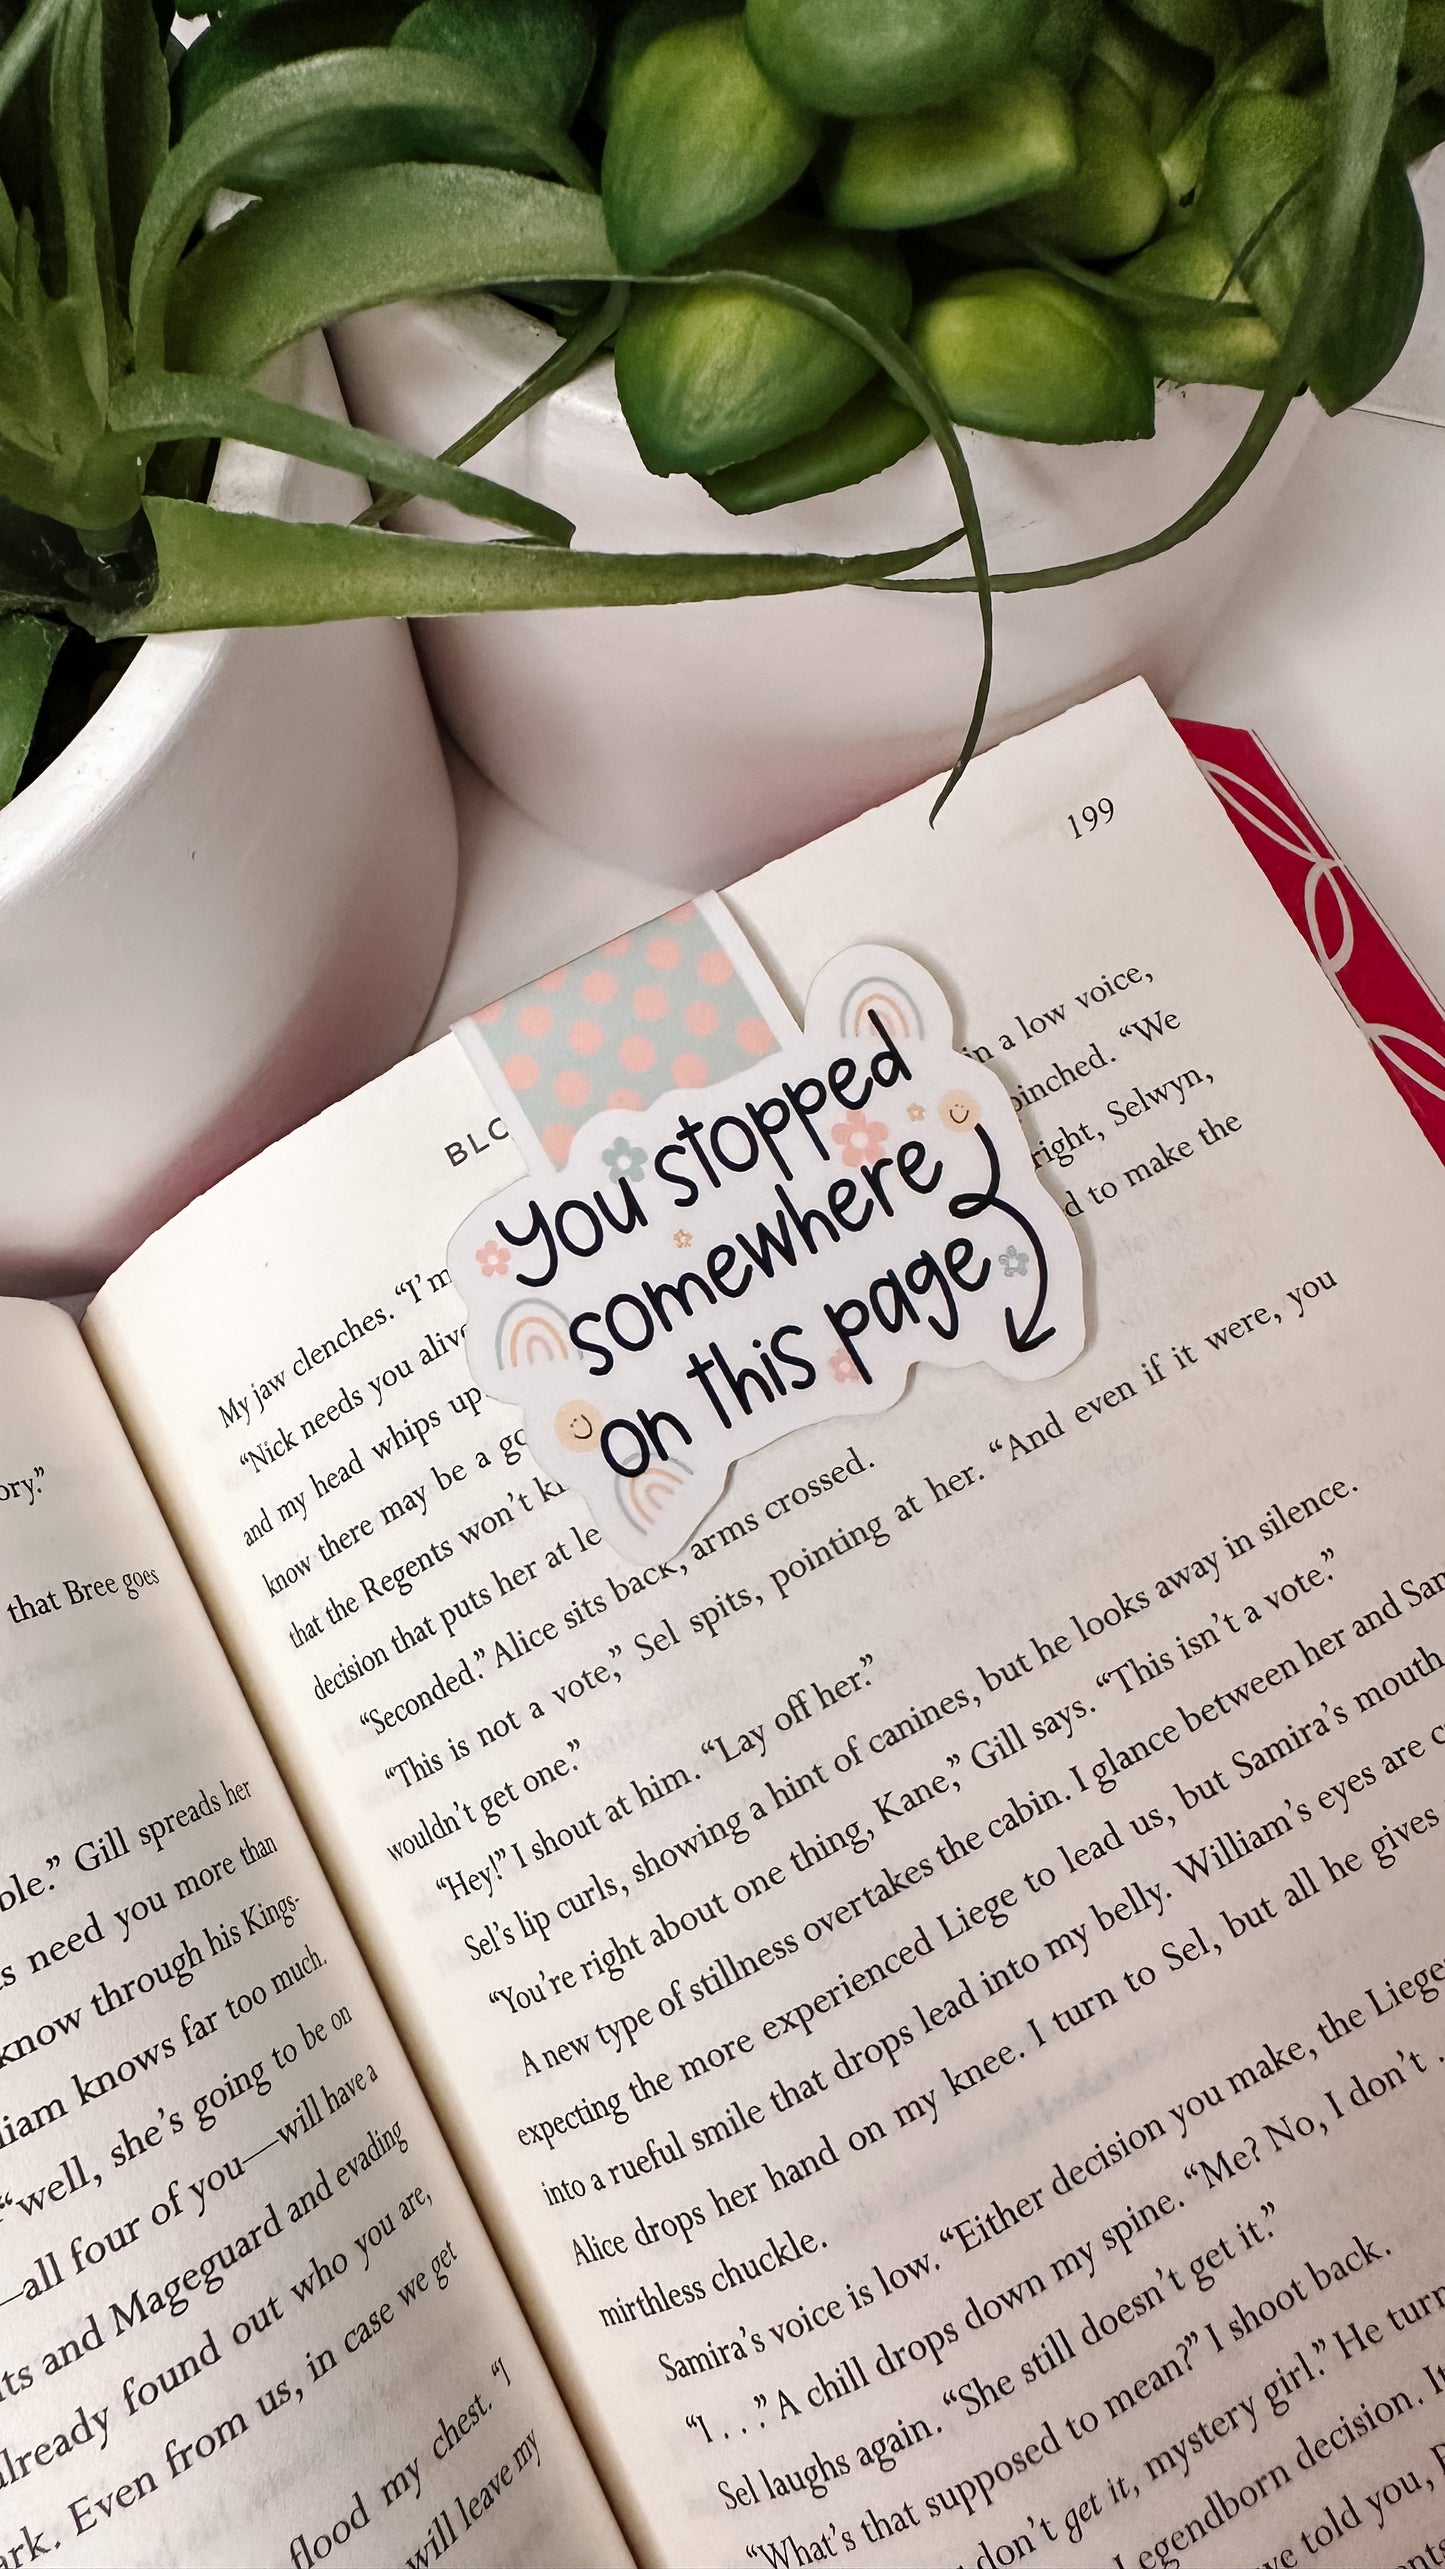 ory.”
that Bree goes
ble.” Gill spreads her
need you more than
know through his Kings-
liam knows far too much,
“well, she’s going to be on
—all four of you—will have a
ts and Mageguard and evading
already found out who you are,
ark. Even from us, in case we get
flood my chest. “I
will leave my
199
BLO
You stopped
somewhere
on this page
in a low voice,
My jaw clenches. “I’m
pinched. “We
“Nick needs you alive
right, Selwyn,
and my head whips up
d to make the
know there may be a go
that the Regents won’t
decision that puts her at le
“Seconded.” Alice sits back, arms crossed.
“This is not a vote,” Sel spits, pointing at her. “And even if it were, you
wouldn’t get one.”
“Hey!” I shout at him. “Lay off her.”
Sel’s lip curls, showing a hint of canines, but he looks away in silence.
“You’re right about one thing, Kane,” Gill says. “This isn’t a vote.”
A new type of stillness overtakes the cabin. I glance between her and Sam
expecting the more experienced Liege to lead us, but Samira’s mouth
into a rueful smile that drops lead into my belly. William’s eyes are c
Alice drops her hand on my knee. I turn to Sel, but all he gives
mirthless chuckle.
Samira’s voice is low. “Either decision you make, the Liege
“I . . .” A chill drops down my spine. “Me? No, I don’t .
Sel laughs again. “She still doesn’t get it.”
“What’s that supposed to mean?” I shoot back.
don’t get it, mystery girl.” He turn
Legendborn decision. It
ve told you, B